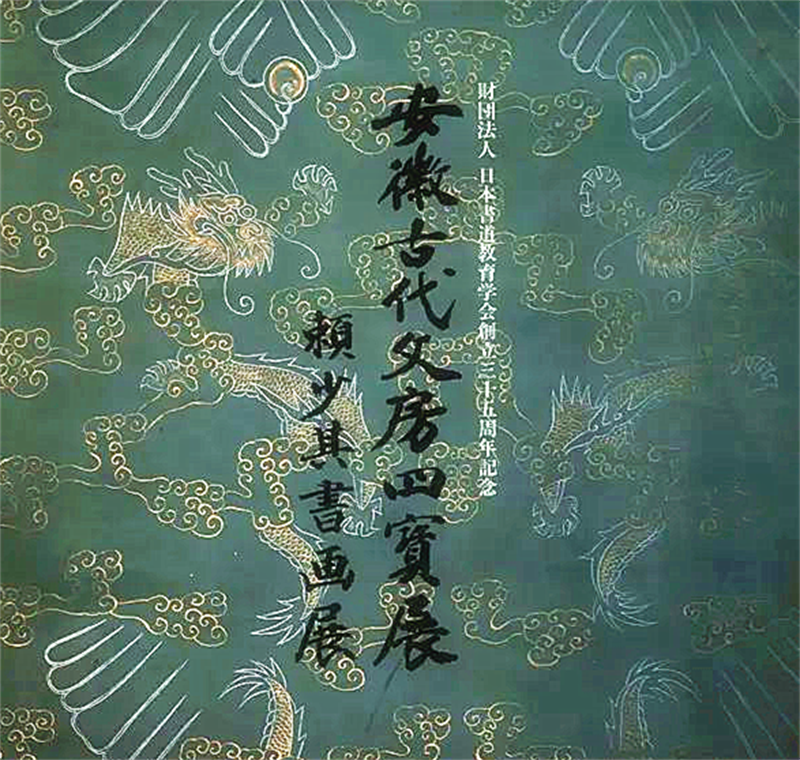 財団法人 日本書道教育学会創立三十五周年記念
安徽古代文房四寳展
頼少其書画展